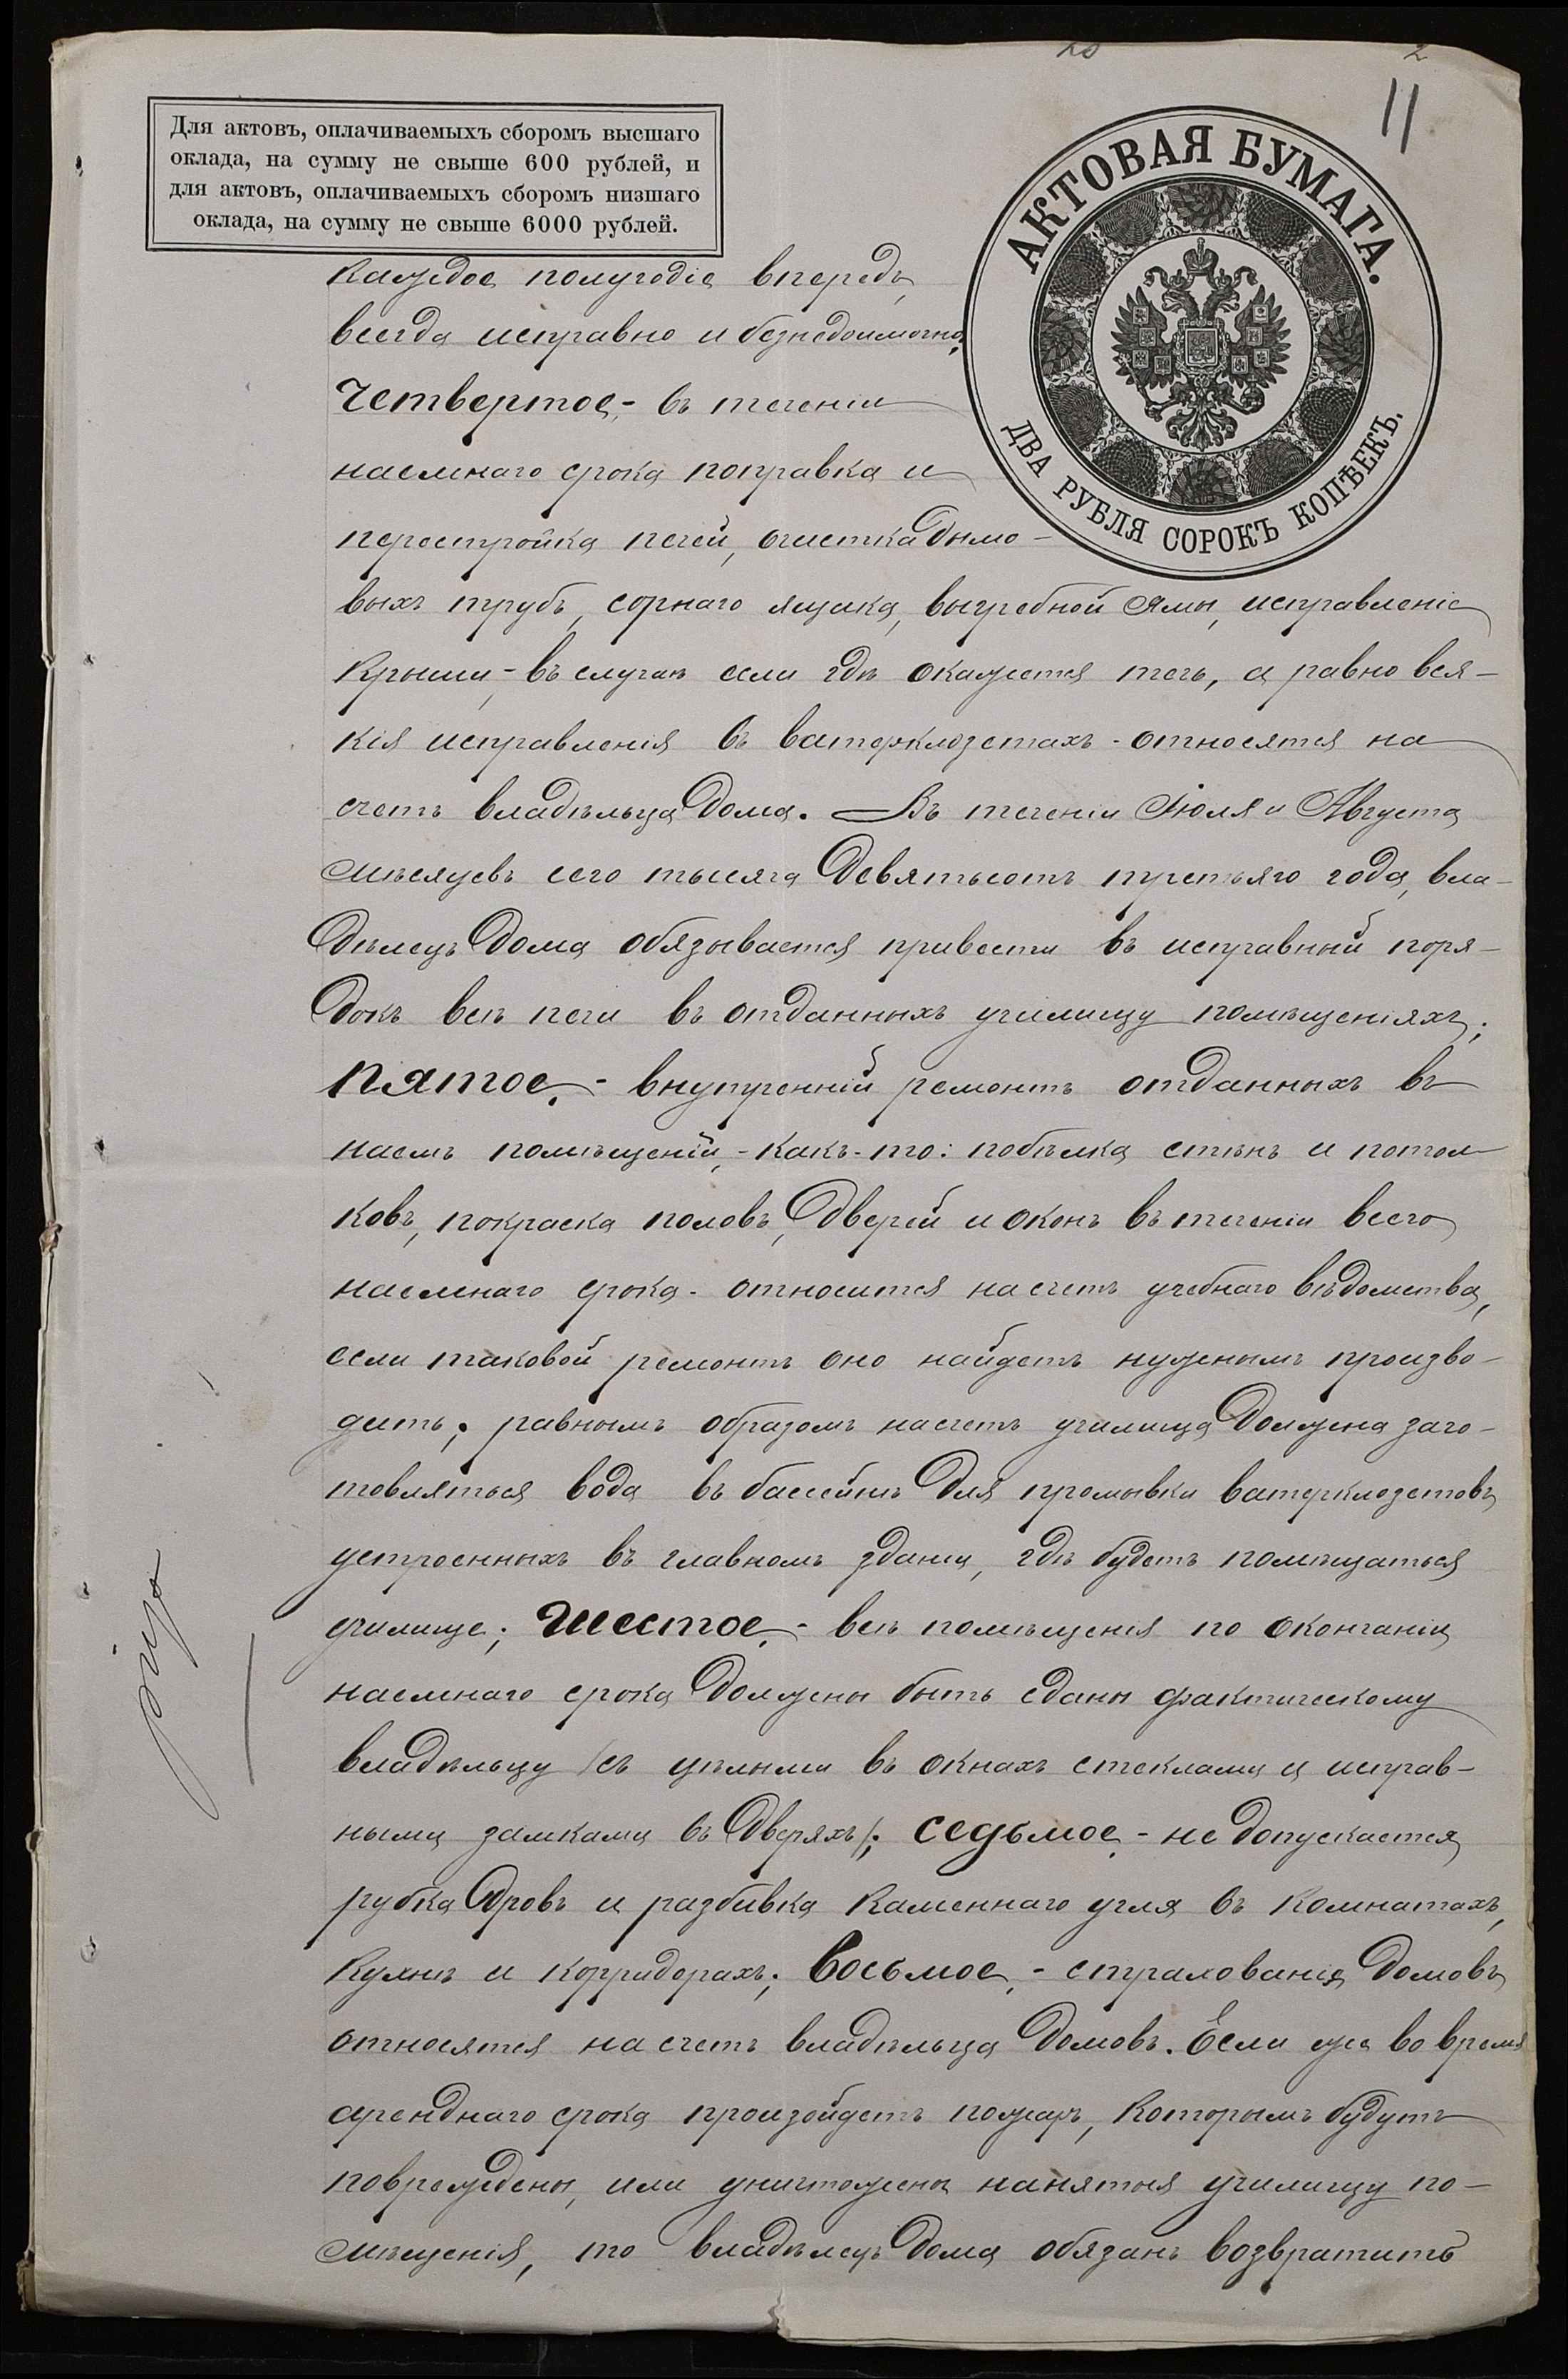 11
Для актовъ, оплачиваемыхъ сборомъ высшаго
оклада, на сумму не свыше 600 рублей, и
для актовъ, оплачиваемыхъ сборомъ низшаго
оклада, на сумму не свыше 6000 рублей.
АКТОВАЯ БУМАГА.
ДВА РУБЛЯ СОРОКЪ КОПѢЕКЪ.
каждое полугодіе впередъ,
всегда исправно и безнедоимочно,
Четвертое,- въ теченіи
наемнаго срока поправка и
перестройка печей, очистка дымо-
выхъ трубъ, сорнаго ящика, выгребной ямы, исправленіе
крыши,- въ случаѣ если гдѣ окажется течь, а равно вся-
кія исправленія въ ватерклозетахъ - относятся на
счетъ владѣльца дома. — Въ теченіи Іюля и Августа
мѣсяцевъ сего тысяча девятьсотъ третьяго года, вла-
дѣлецъ дома обязывается привести въ исправный поря-
докъ всѣ печи въ отданныхъ училищу помѣщеніяхъ;
Пятое,- внутренній ремонтъ отданныхъ въ
наемъ помѣщеній,- какъ-то: побѣлка стѣнъ и потол-
ковъ, покраска половъ, дверей и оконъ въ теченіи всего
наемнаго срока - относится на счетъ учебнаго вѣдомства,
если таковой ремонтъ оно найдетъ нужнымъ произво-
дить; равнымъ образомъ на счетъ училища должна заго-
товляться вода въ бассейнъ для промывки ватерклозетовъ,
устроенныхъ въ главномъ зданіи, гдѣ будетъ помѣщаться
училище; Шестое,- всѣ помѣщенія по окончаніи
наемнаго срока должны быть сданы фактическому
владѣльцу /съ цѣлыми въ окнахъ стеклами и исправ-
ными замками въ дверяхъ/; седьмое,- не допускается
рубка дровъ и разбивка каменнаго угля въ комнатахъ,
кухнѣ и корридорахъ; восьмое,- страхованія домовъ
относятся на счетъ владѣльца домовъ. Если же во время
аренднаго срока произойдетъ пожаръ, которымъ будутъ
повреждены, или уничтожены нанятыя училищу по-
мѣщенія, то владѣлецъ дома обязанъ возвратить